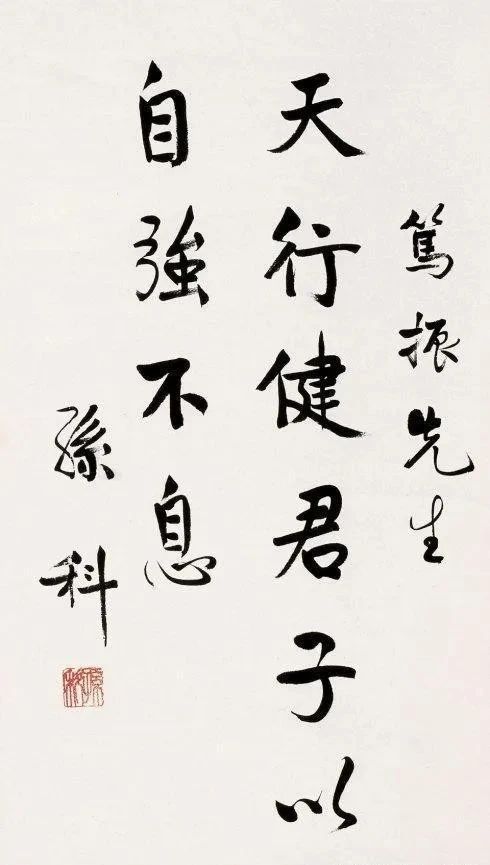 篤振先生
天行健君子以
自強不息
孫科